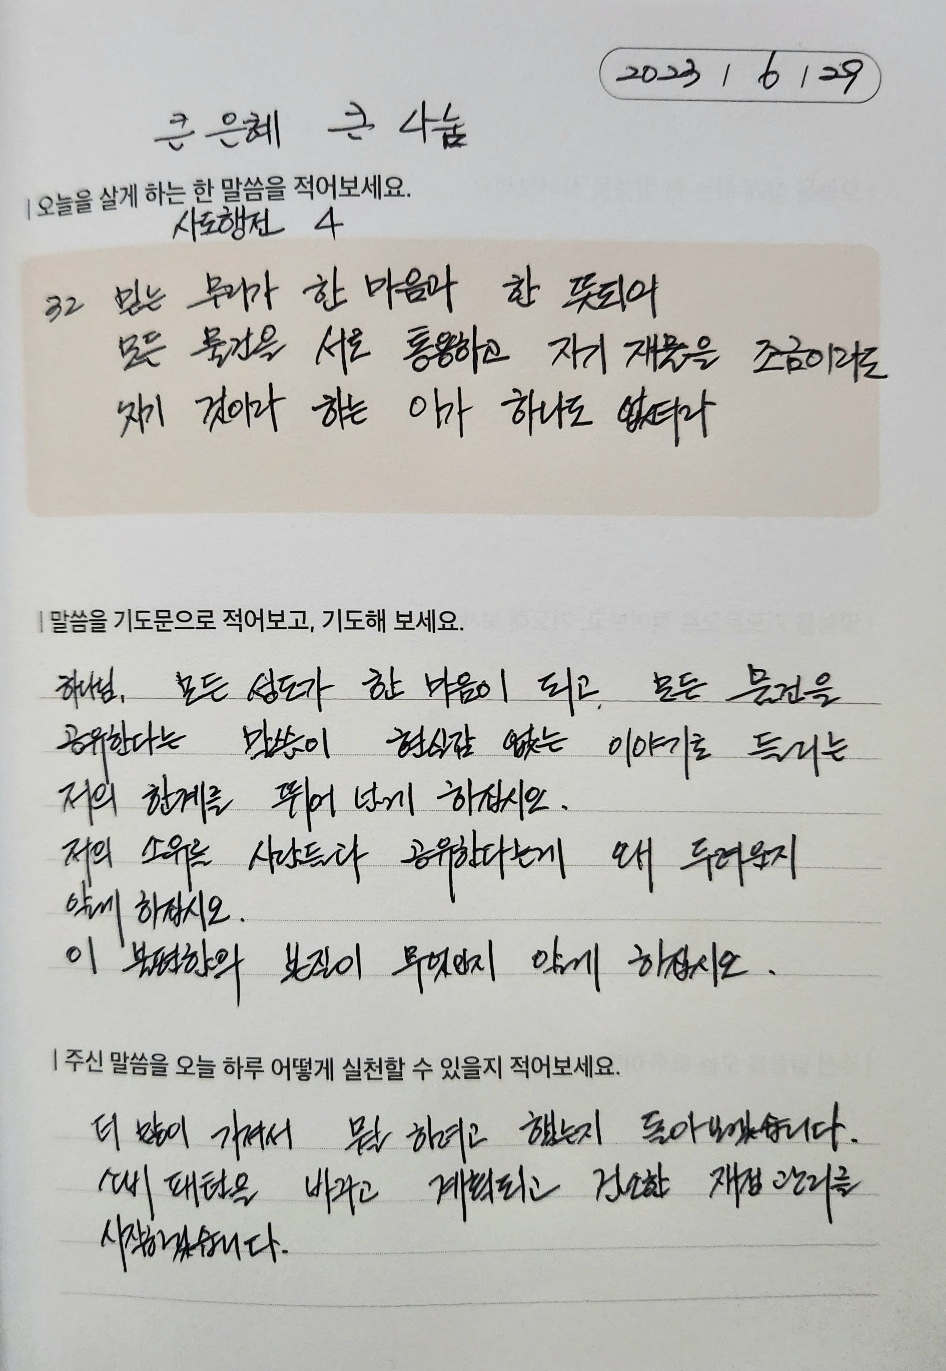 2023 / 6 / 29
큰 은혜 큰 나눔
오늘을 살게 하는 한 말씀을 적어보세요.
사도행전 4
32 믿는 무리가 한 마음과 한 뜻되어
모든 물건을 서로 통용하고 자기 재물을 조금이라도
자기 것이라 하는 이가 하나도 없더라
말씀을 기도문으로 적어보고, 기도해 보세요.
하나님, 모든 성도가 한 마음이 되고, 모든 물건을
공유한다는 말씀이 현실감 없는 이야기로 들리는
저의 한계를 뛰어 넘게 하십시오.
저의 소유를 사람들과 공유한다는게 왜 두려운지
알게 하십시오.
이 불편함의 본질이 무엇인지 알게 하십시오.
주신 말씀을 오늘 하루 어떻게 실천할 수 있을지 적어보세요.
더 많이 가져서 뭘 하려고 했는지 돌아보겠습니다.
소비 패턴을 바꾸고 계획되고 검소한 재정관리를
시작하겠습니다.